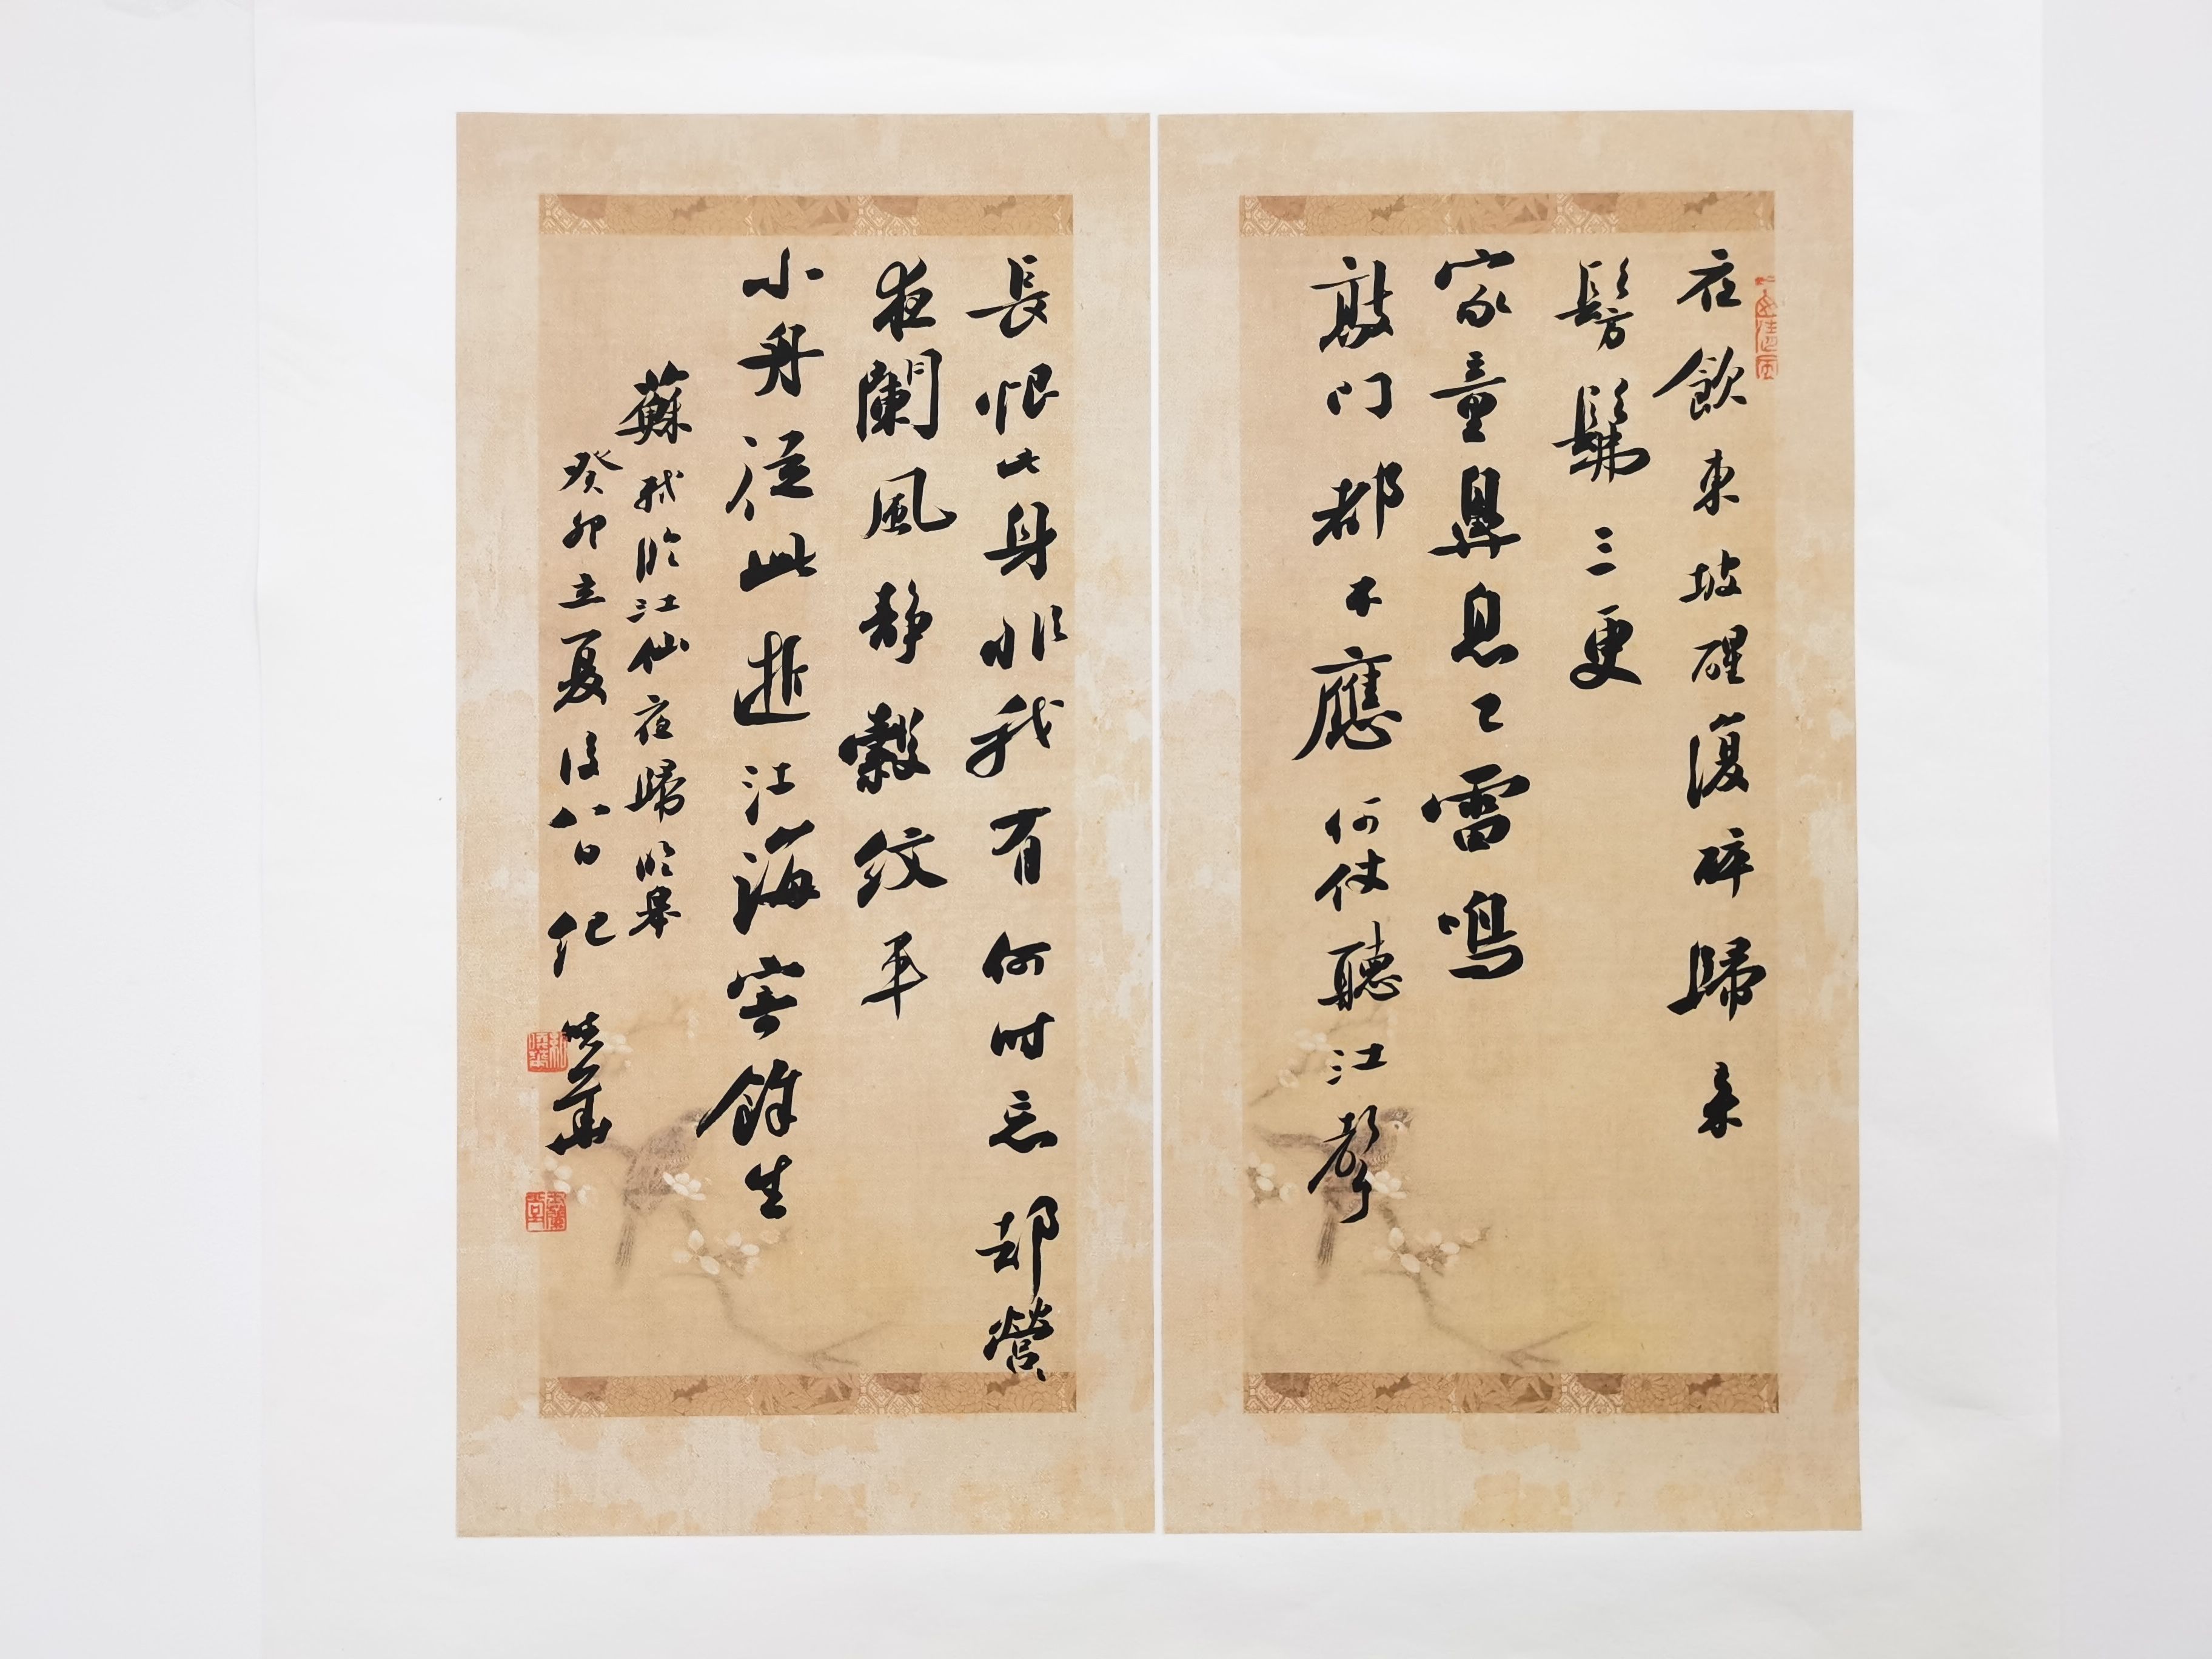 夜飲東坡醒復醉歸來
髣髴三更
家童鼻息已雷鳴
敲门都不應何仗聽江聲
長恨此身非我有何时忘却營
夜闌風靜縠紋平
小舟從此逝江海寄餘生
蘇軾臨江仙夜歸臨皋
癸卯立夏後八日紀